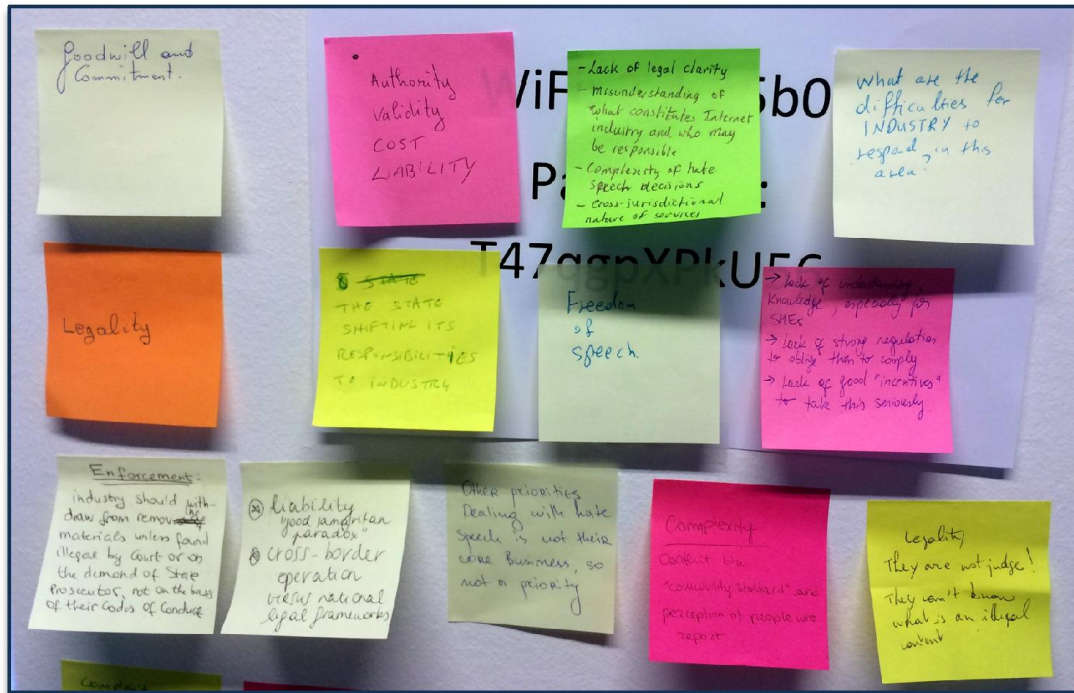 Goodwill and
Commitment.
Authority
Validity
COST
LIABILITY
- Lack of legal clarity
- Misunderstanding of
what constitutes Internet
industry and who may
be responsible
- Complexity of hate
speech decisions
- Cross-jurisdictional
nature of services
What are the
difficulties for
INDUSTRY to
respond in this
area?
WiF
5b0
Pa
:
T47qgpXPkU56
Legality
THE STATE
SHIFTING ITS
RESPONSIBILITIES
TO INDUSTRY
Freedom
of
speech
→ Lack of understanding,
knowledge, especially for
SMEs
→ Lack of strong regulation
to oblige them to comply
→ Lack of good "incentives"
to take this seriously
Enforcement:
industry should with-
draw from removing
materials unless found
illegal by Court or on
the demand of State
Prosecutor, not on the basis
of their Codes of Conduct
liability
"good samaritan
paradox"
cross-border
operation
versus national
legal frameworks
Other priorities
Dealing with hate
speech is not their
core Business, so
not a priority
Complexity
Conflict btw
"community standard" and
perception of people who
report
Legality
They are not judge!
They won't know
what is an illegal
content